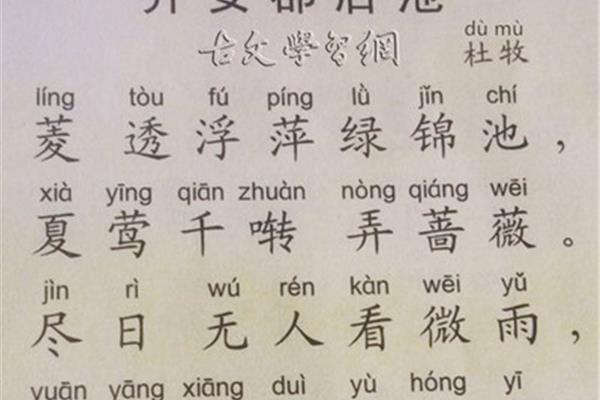 齐安郡后池
古文學習網
dù mù
杜牧
líng tòu fú píng lǜ jǐn chí
菱透浮萍绿锦池，
xià yīng qiān zhuàn nòng qiáng wēi
夏莺千啭弄蔷薇。
jìn rì wú rén kàn wēi yǔ
尽日无人看微雨，
yuān yāng xiāng duì yù hóng yī